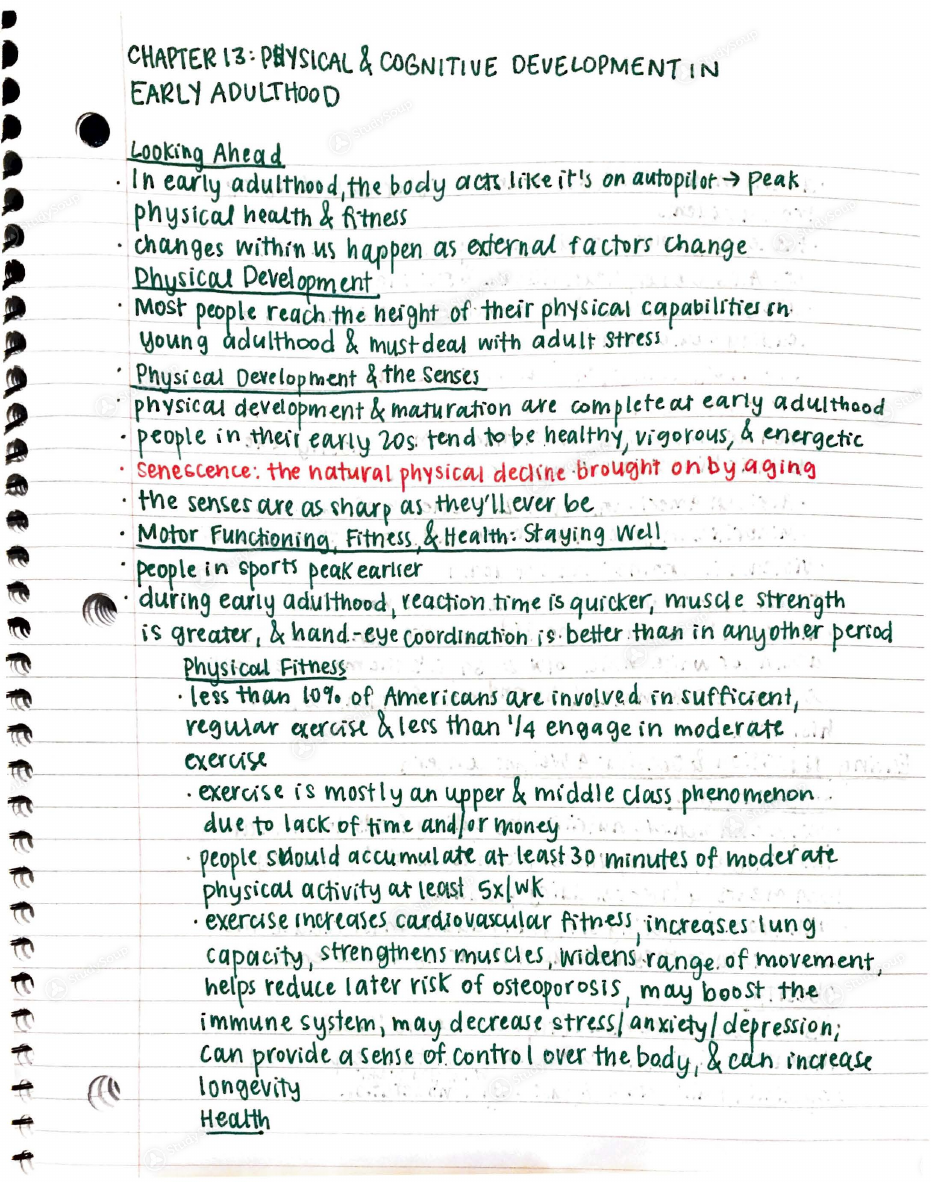 CHAPTER 13: PHYSICAL & COGNITIVE DEVELOPMENT IN
EARLY ADULTHOOD
Looking Ahead
· In early adulthood, the body acts like it's on autopilot → peak
physical health & fitness
· changes within us happen as external factors change
Physical Development
· Most people reach the height of their physical capabilities in
young adulthood & must deal with adult stress
· Physical Development & the Senses
· physical development & maturation are complete at early adulthood
· people in their early 20s tend to be healthy, vigorous, & energetic
· senescence: the natural physical decline brought on by aging
· the senses are as sharp as they'll ever be
· Motor Functioning, Fitness, & Health: Staying Well
· people in sports peak earlier
· during early adulthood, reaction time is quicker, muscle strength
is greater, & hand-eye coordination is better than in any other period
Physical Fitness
· less than 10% of Americans are involved in sufficient,
regular exercise & less than 1/4 engage in moderate
exercise
· exercise is mostly an upper & middle class phenomenon
due to lack of time and/or money
· people should accumulate at least 30 minutes of moderate
physical activity at least 5x/wk
· exercise increases cardiovascular fitness, increases lung
capacity, strengthens muscles, widens range of movement,
helps reduce later risk of osteoporosis, may boost the
immune system, may decrease stress/anxiety/depression;
can provide a sense of control over the body, & can increase
longevity
Health
StudySoup